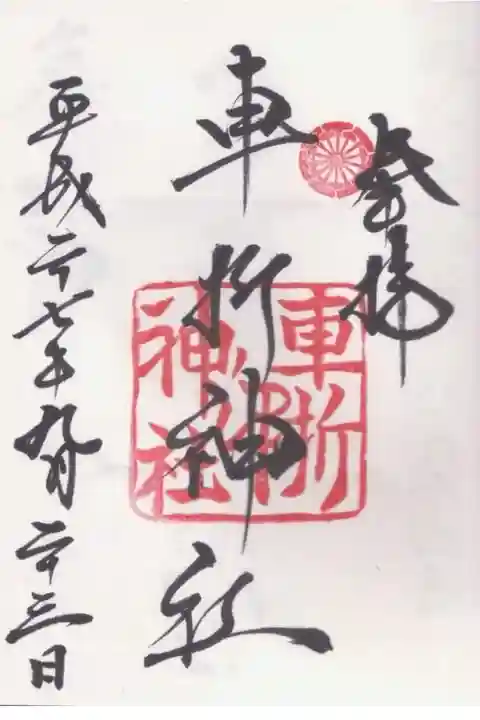 奉拝
車折神社
車折神社
平成二十七年九月二十三日